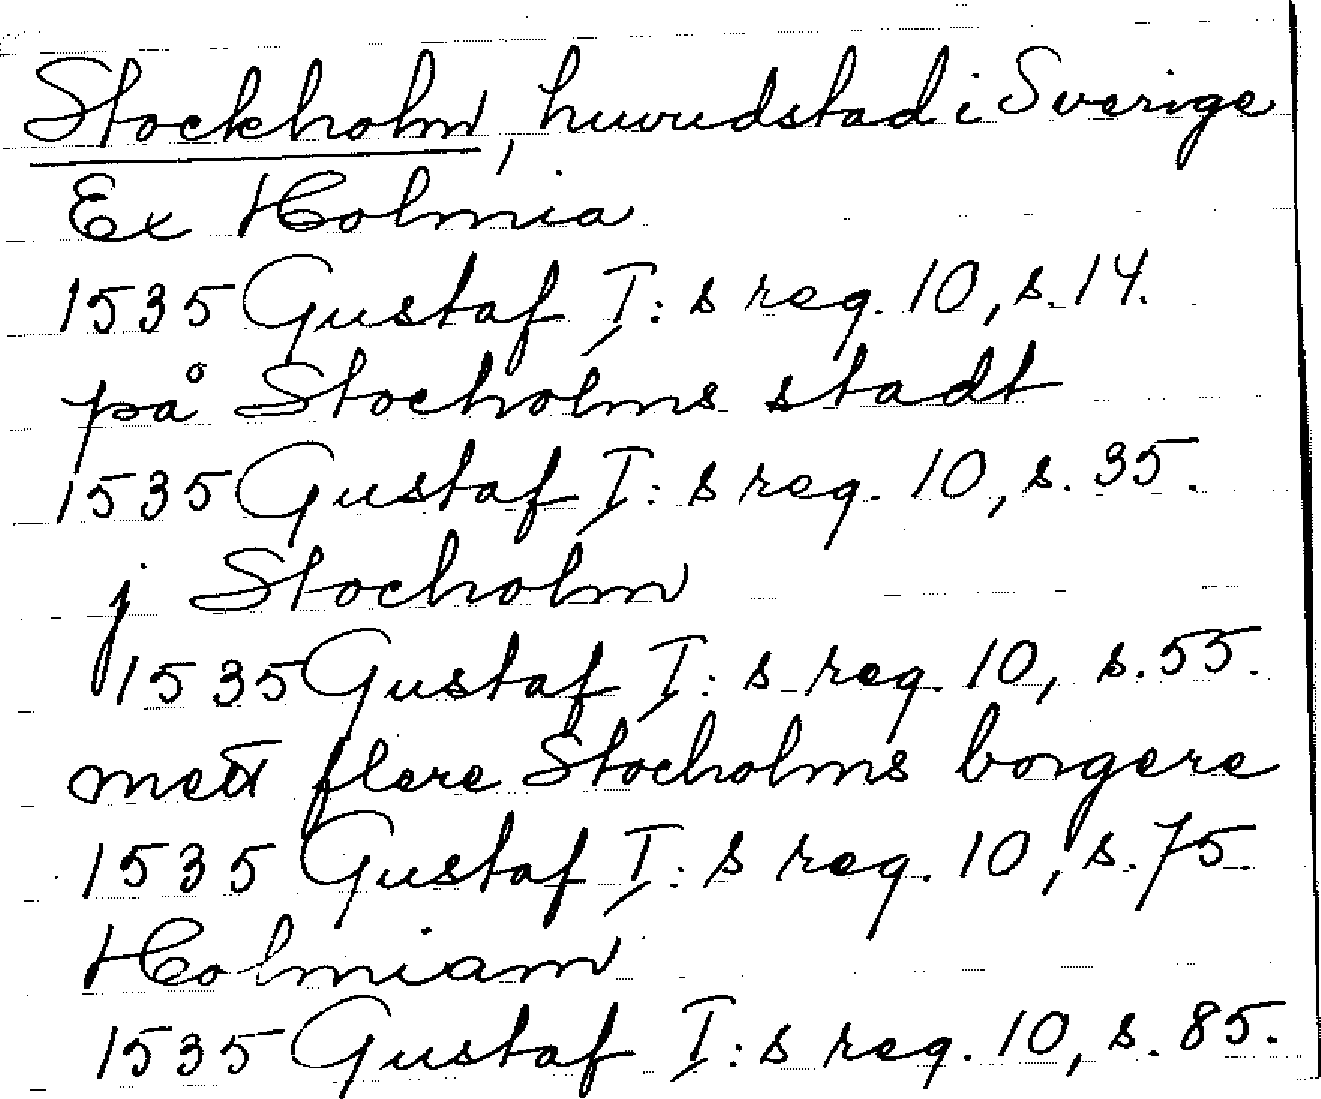 Stockholm, huvudstad i Sverige
Ex Holmia
1535 Gustaf I:s reg. 10, s. 14.
på Stocholms stadt
1535 Gustaf I:s reg. 10, s. 35.
j Stocholm
1535 Gustaf I:s reg. 10, s. 55.
mett flere Stocholms borgere
1535 Gustaf I:s reg. 10, s. 75
Holmiam
1535 Gustaf I:s reg. 10, s. 85.